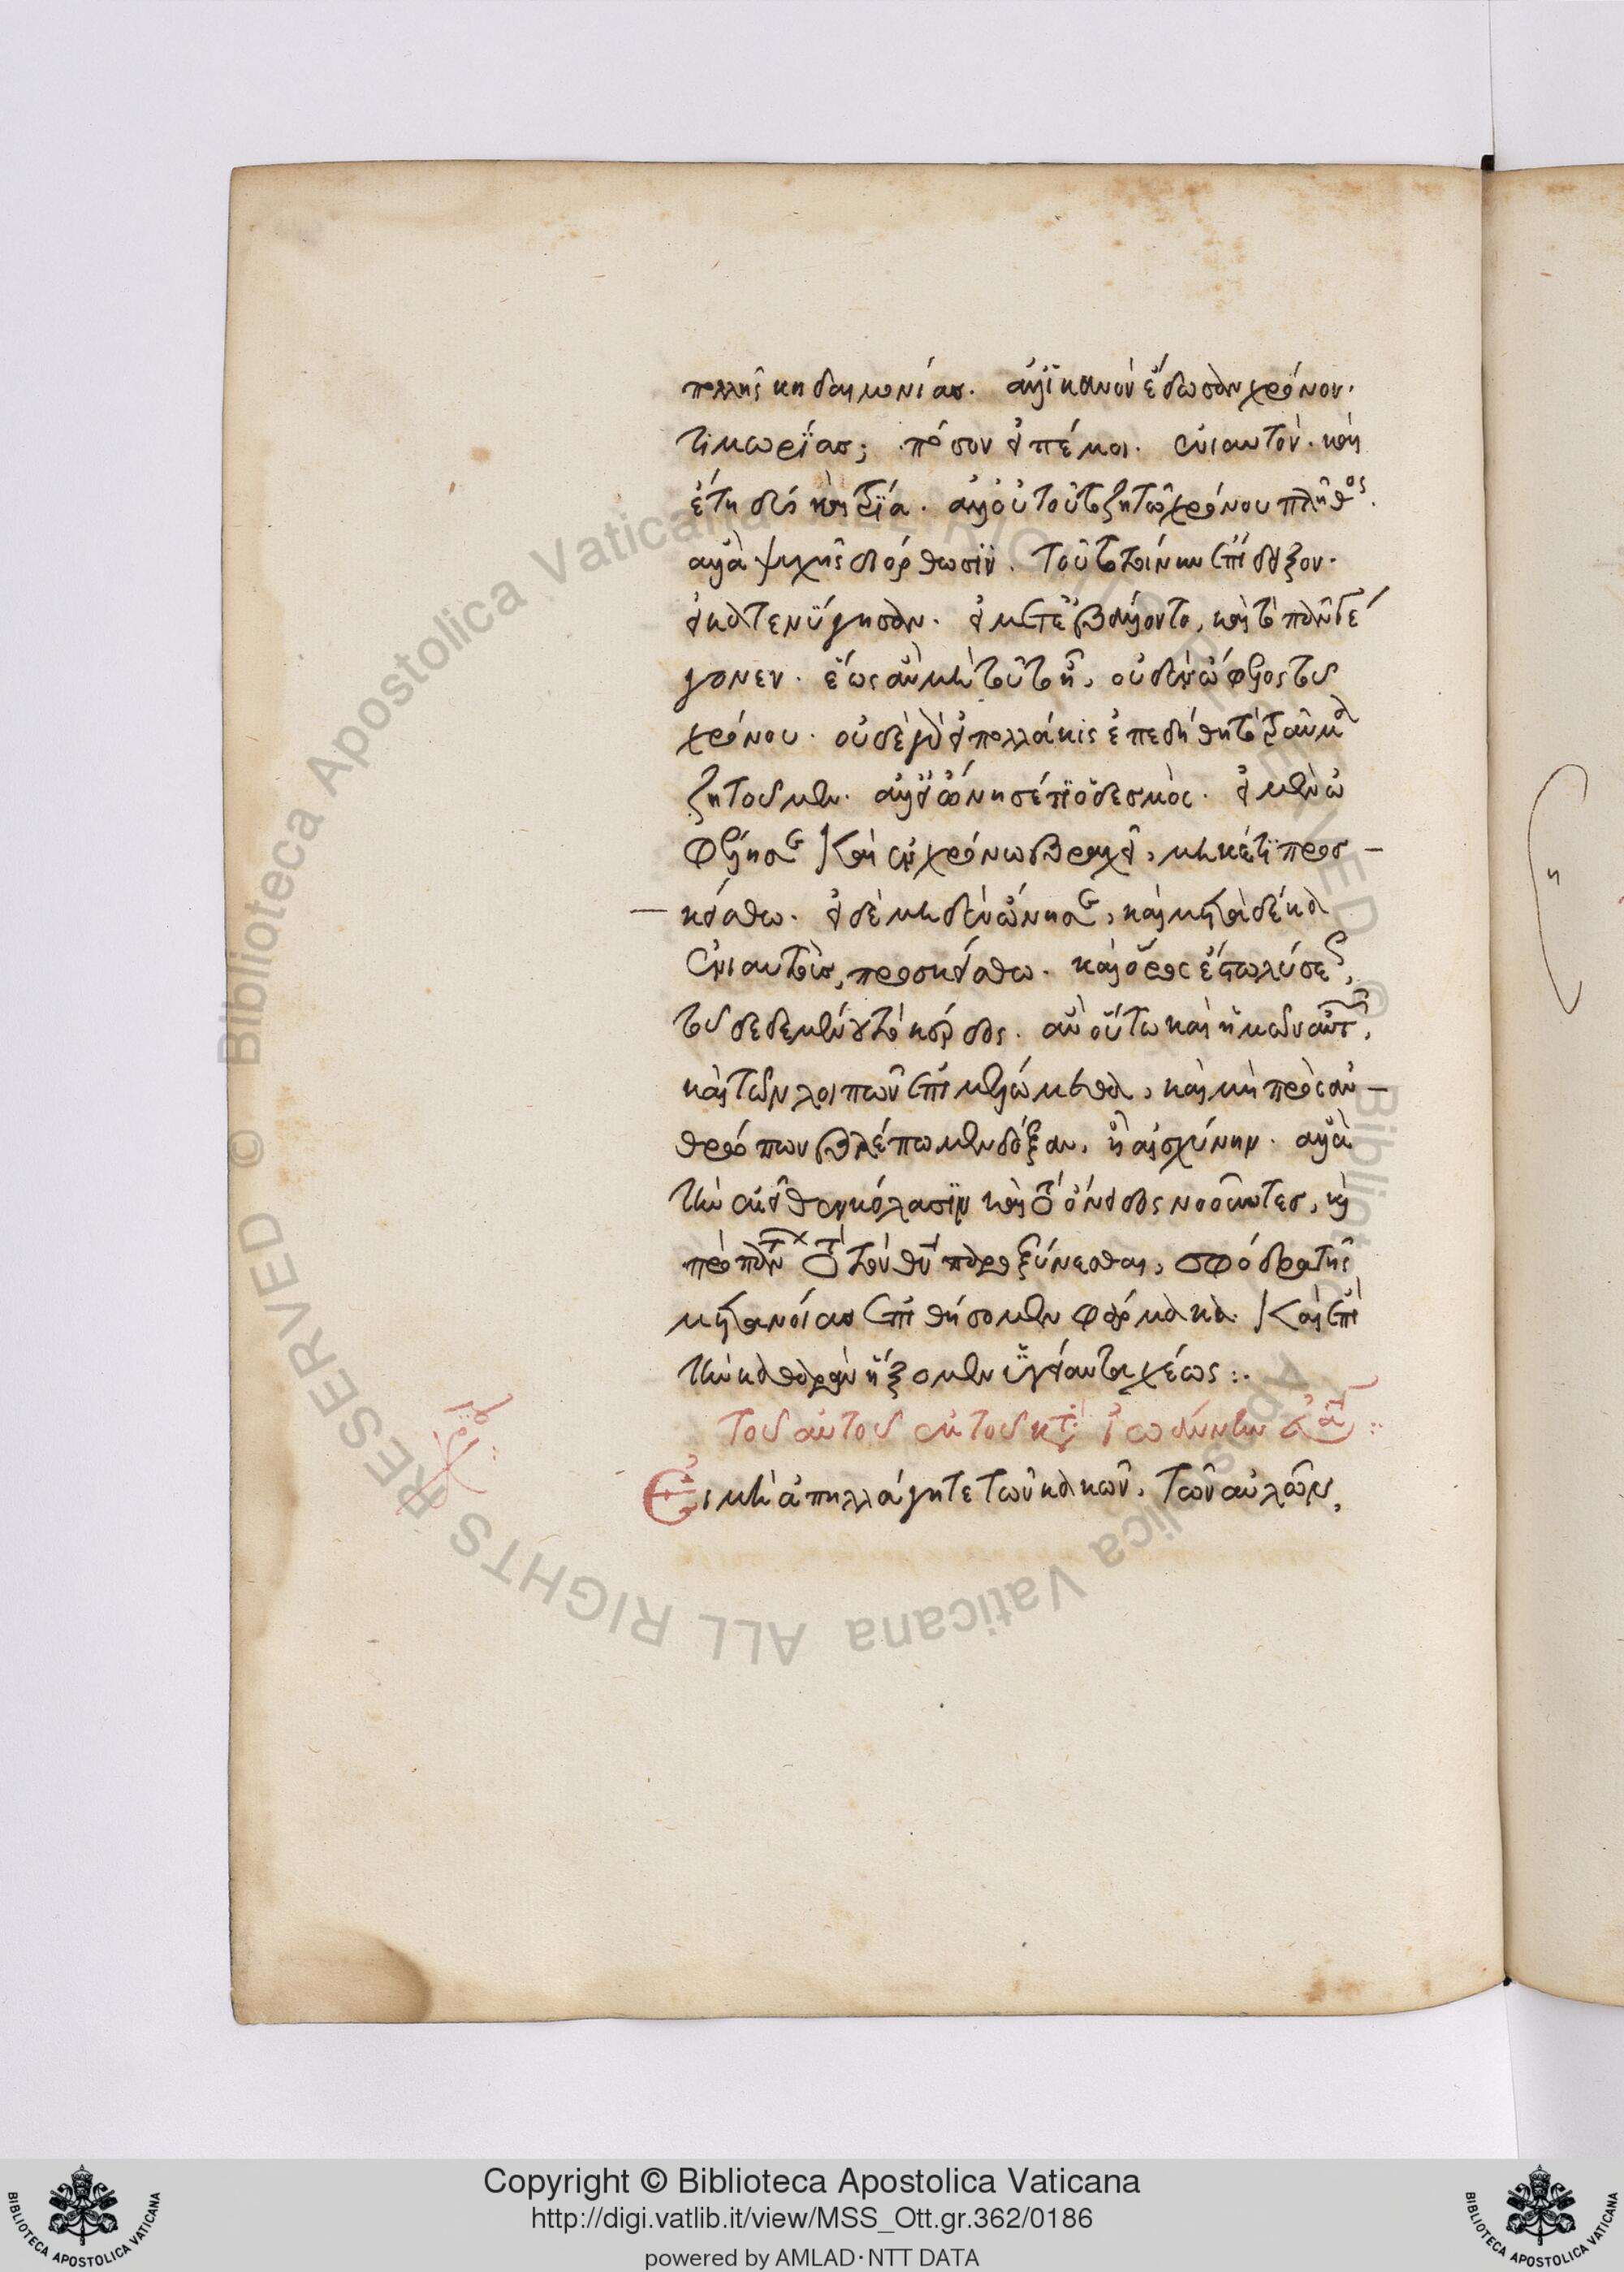 πολλῆς κηδαιμονίας. ἀλλ' ἱκανὸν ἔδωσαν χρόνον.
τιμωρίας; πόσον εἰπέ μοι. ἐνιαυτόν. καὶ
ἔτη δύο καὶ τρία. ἀλλ' οὐ τοῦτο ζητῶ χρόνου πλῆθος.
ἀλλὰ ψυχῆς διόρθωσιν. τοῦτο τοίνυν ἐπίδειξον.
εἰ κατενύγησαν. εἰ μετεβάλοντο, καὶ τὸ πᾶν γέ
γονεν. ἕως ἂν μὴ τοῦτο ᾖ, οὐδὲν ὄφελος τοῦ
χρόνου. οὐδὲ γὰρ εἰ πολλάκις ἐπεδήθη τὸ τραῦμα
ζητοῦμεν. ἀλλ' εἰ ὤνησέ τι ὁ δεσμός. εἰ μὲν ὠ
φέλησε καὶ ἐν χρόνῳ βραχεῖ, μηκέτι προσ
κείσθω. εἰ δὲ μηδὲν ὤνησε, καὶ μετὰ δέκα
ἐνιαυτοὺς, προσκείσθω. καὶ ὅρος ἔστω λύσεως,
τοῦ δεδεμένου τὸ κέρδος. ἂν οὕτω καὶ ἡμῶν αὐτῶν,
καὶ τῶν λοιπῶν ἐπιμελώμεθα, καὶ μὴ πρὸς ἀν
θρώπων βλέπωμεν δόξαν, ἢ αἰσχύνην. ἀλλὰ
τὴν ἐκεῖθεν κόλασιν καὶ τὸ ὄνειδος νοοῦντες, καὶ
πρὸ πάντων τὸ τὸν θν παροξύνεσθαι, σφόδρα τῆς
μετανοίας ἐπιθήσομεν φάρμακα. καὶ ἐπὶ
τὴν καθαρὰν ἥξομεν ὑγείαν ταχέως :.
τοῦ αὐτοῦ ἐκ τοῦ κατ
Εἰ μὴ ἀπηλλάγητε τῶν κακῶν, τῶν αὐλῶν,
Copyright © Biblioteca Apostolica Vaticana
http://digi.vatlib.it/view/MSS_Ott.gr.362/0186
powered by AMLAD·NTT DATA
BIBLIOTECA APOSTOLICA VATICANA
BIBLIOTECA APOSTOLICA VATICANA
© Biblioteca Apostolica Vaticana ALL RIGHTS RESERVED
© Biblioteca Apostolica Vaticana ALL RIGHTS RESERVED